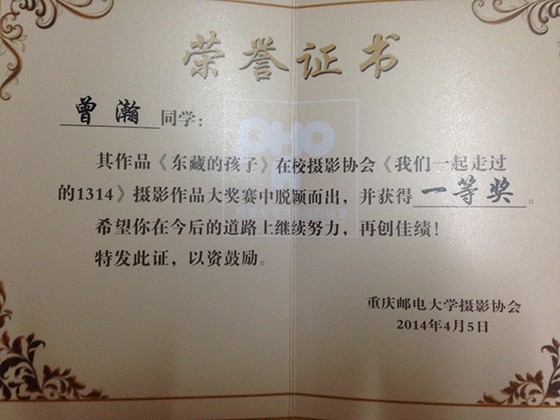 荣誉证书
曾瀚同学:
其作品《东藏的孩子》在校摄影协会《我们一起走过
的1314》摄影作品大奖赛中脱颖而出,并获得一等奖。
希望你在今后的道路上继续努力,再创佳绩!
特发此证,以资鼓励。
重庆邮电大学摄影协会
2014年4月5日